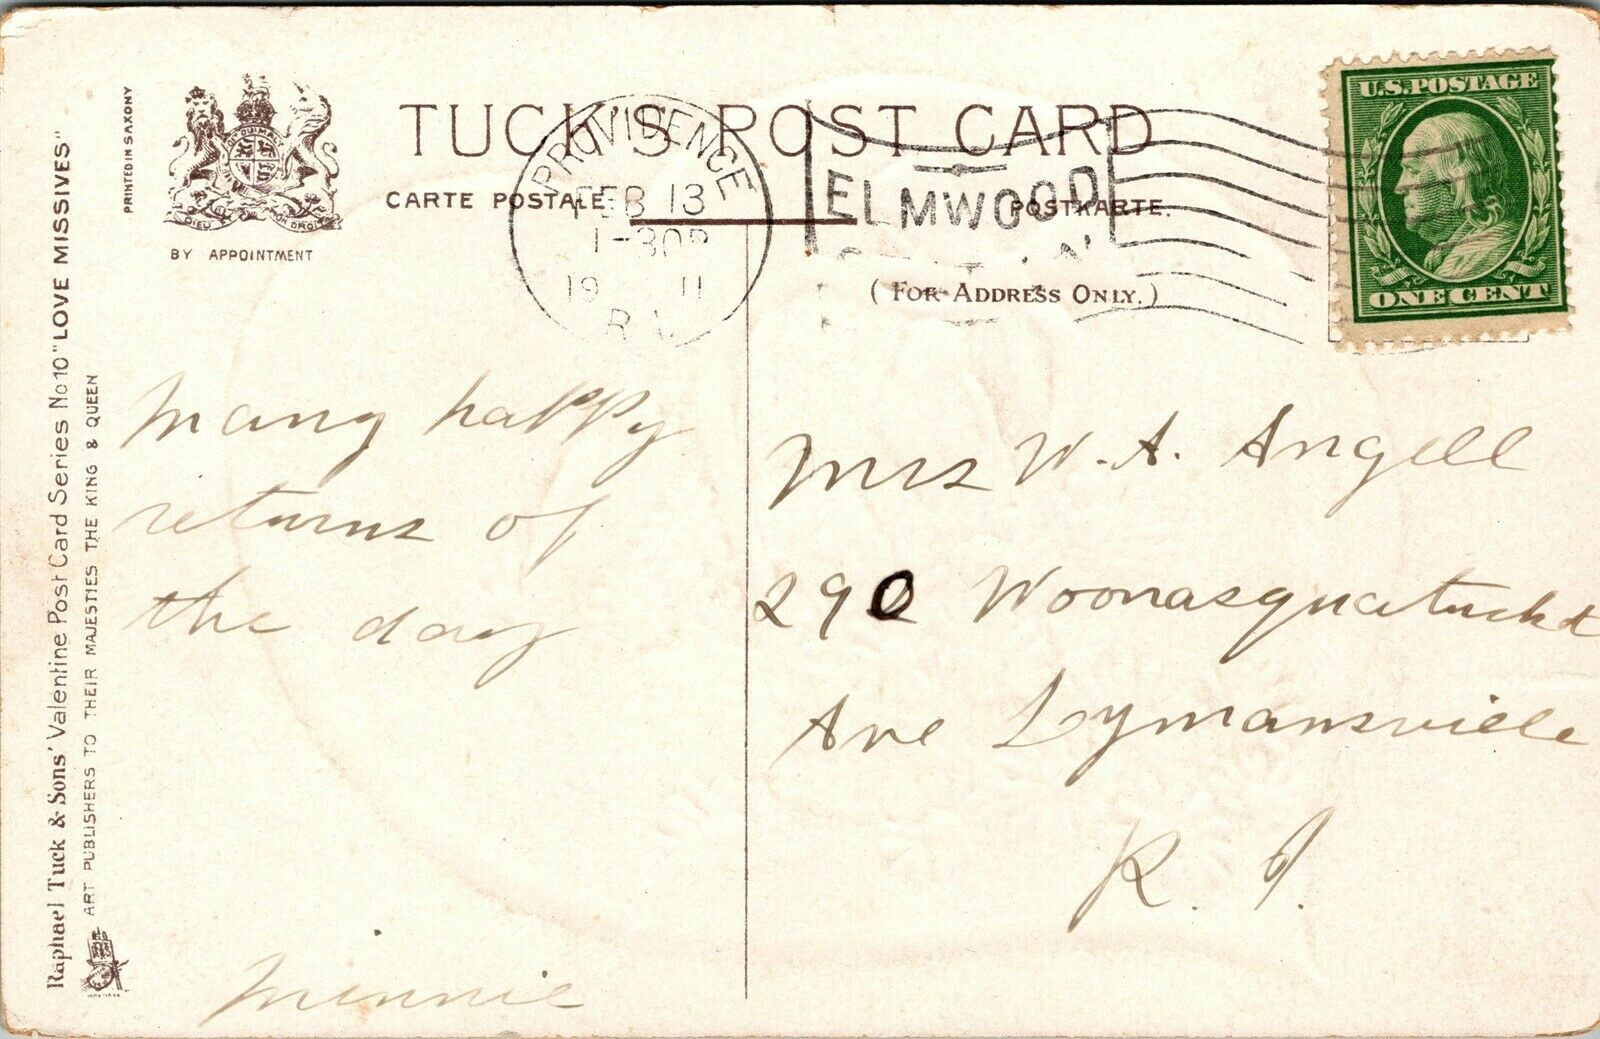 TUCK'S POST CARD
CARTE POSTALE
POSTKARTE.
(FOR ADDRESS ONLY.)
BY APPOINTMENT
DIEU ET MON DROIT
PRINTED IN SAXONY
Raphael Tuck & Sons' Valentine Post Card Series No 10 "LOVE MISSIVES"
ART PUBLISHERS TO THEIR MAJESTIES THE KING & QUEEN
PROVIDENCE
FEB 13
1-30P
19 11
R.I.
ELMWOOD
U.S. POSTAGE
ONE CENT
Many happy
returns of
the day
Minnie
Mrs W. A. Angell
290 Woonasquatucket
Ave Lymansville
R. I.